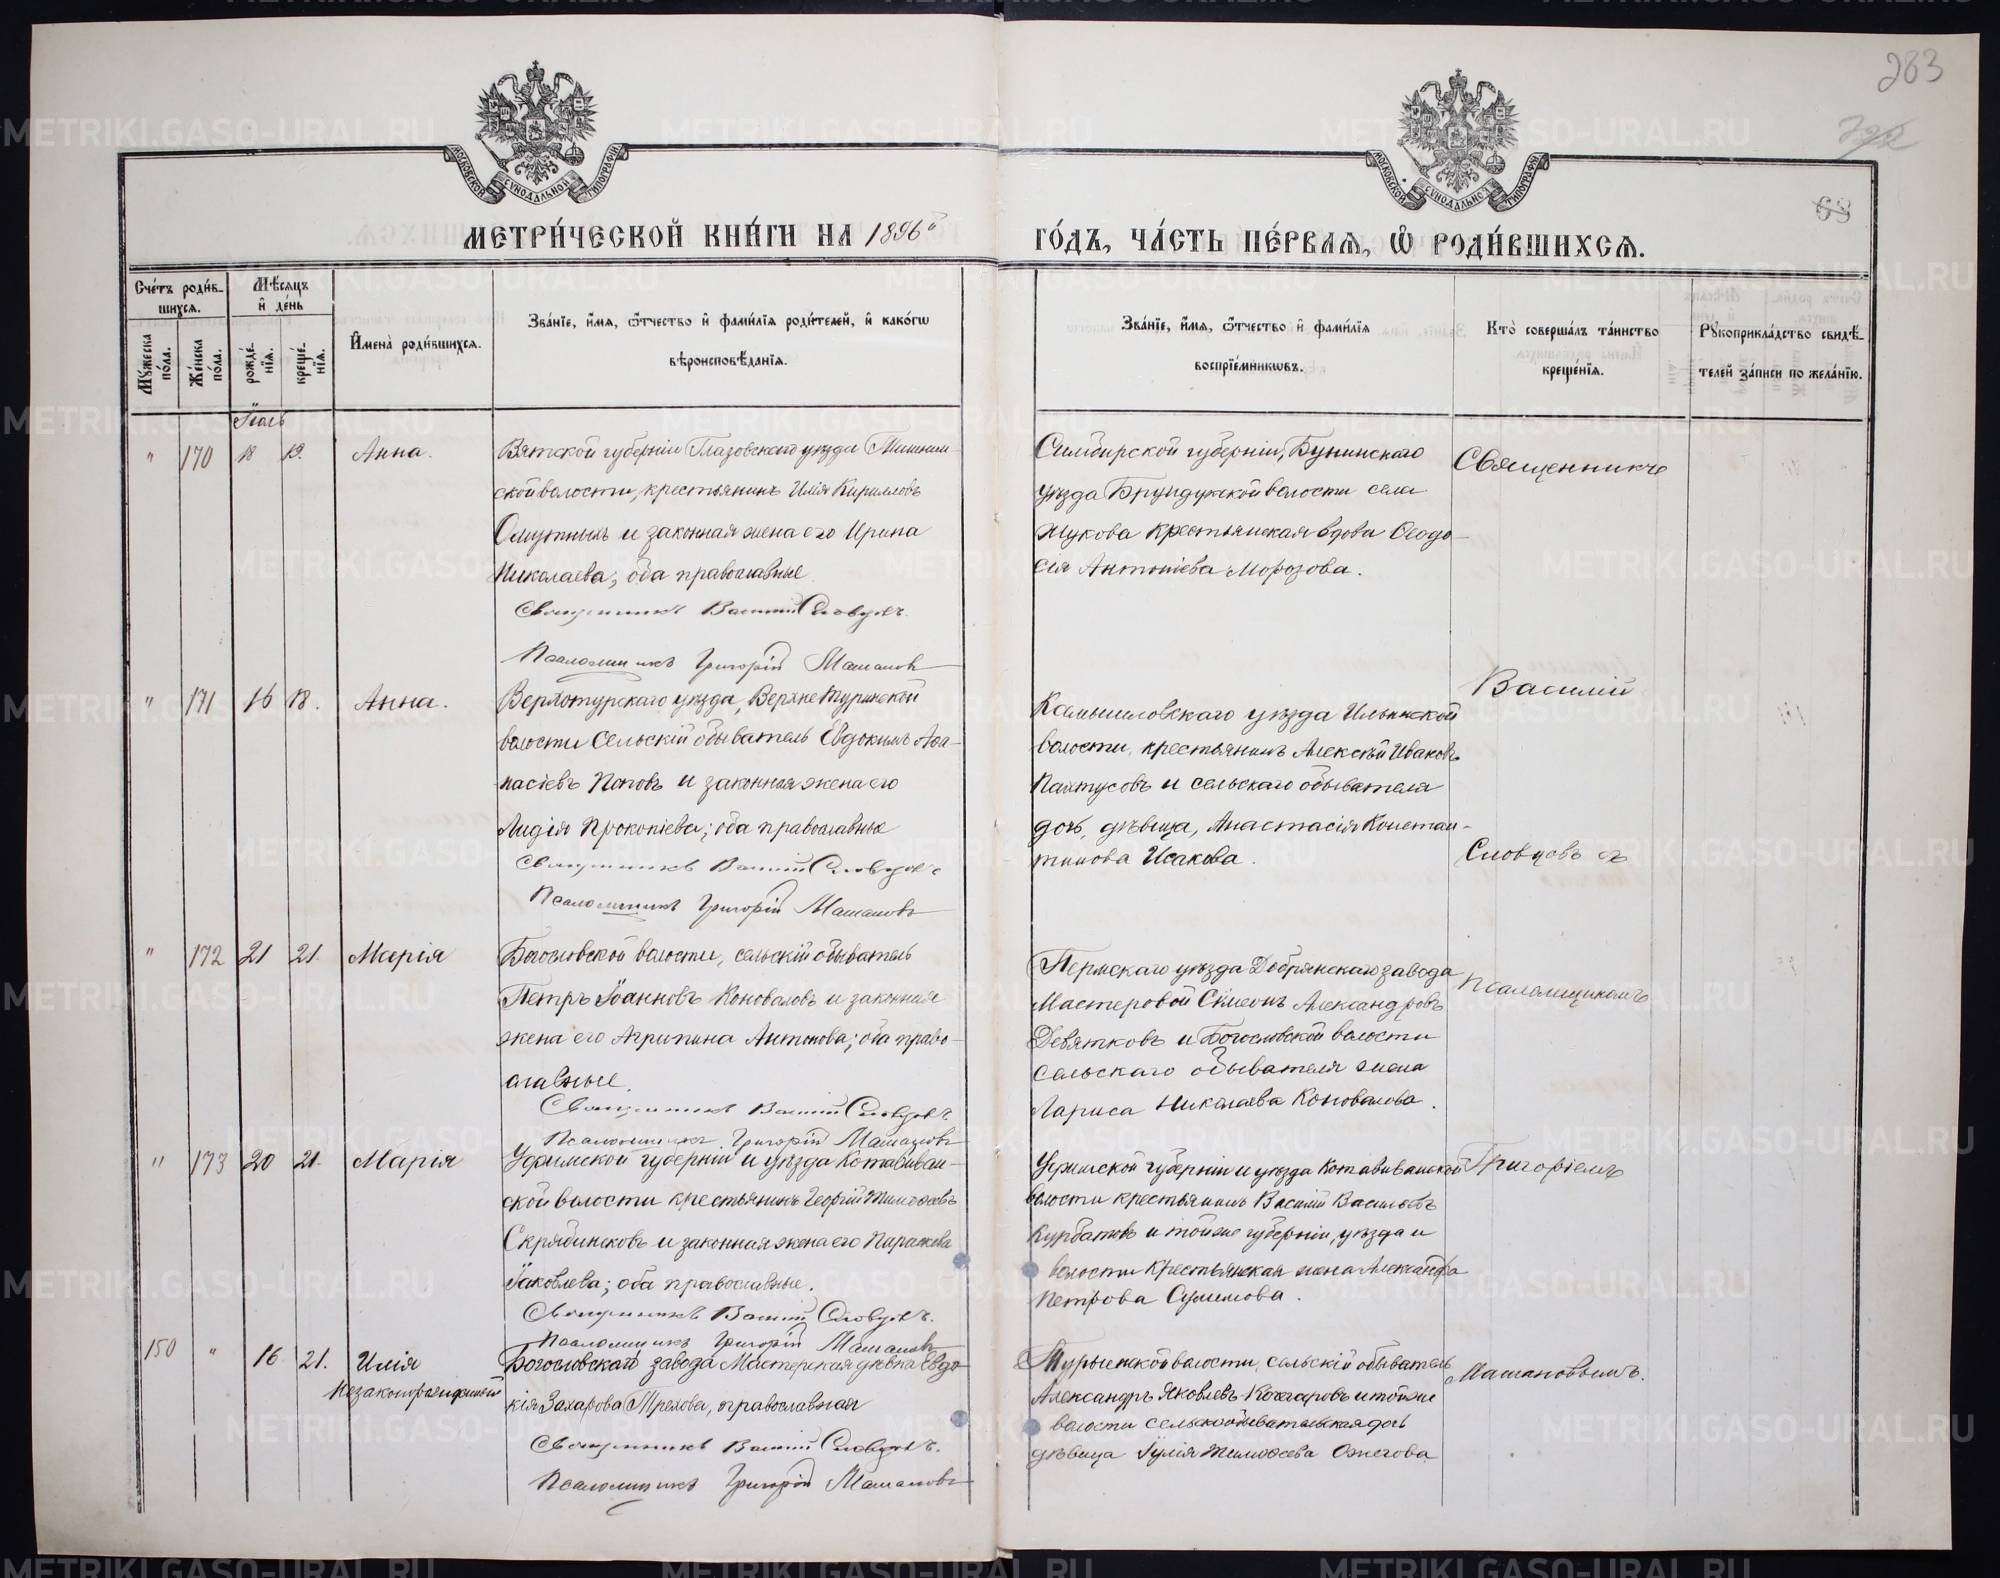 283
68
МОСКОВСКОЙ СѴНОДАЛЬНОЙ ТИПОГРАФІИ
МОСКОВСКОЙ СѴНОДАЛЬНОЙ ТИПОГРАФІИ
МЕТРИ́ЧЕСКОЙ КНИ́ГИ НА 1896й
ГО́ДЪ, ЧА́СТЬ ПЕ́РВАѦ, Ѡ҆ РОДИ́ВШИХСѦ.
Сче́тъ роди́в-
шихсѧ.
Мꙋ́жеска по́ла.
Же́нска по́ла.
Мѣ́сѧцъ
и҆ де́нь
рожде́нїѧ.
креще́нїѧ.
И҆мена̀ роди́вшихсѧ.
Зва́нїе, и҆́мѧ, ѻ҆́тчество и҆ фами́лїѧ роди́телей, и҆ како́гѡ
вѣроисповѣ́данїѧ.
Зва́нїе, и҆́мѧ, ѻ҆́тчество и҆ фами́лїѧ
воспрїе́мникѡвъ.
Кто̀ соверша́лъ та́инство
креще́нїѧ.
Рꙋкоприкла́дство свидѣ́-
телей за́писи по жела́нїю.
Іюль
" 170 18 19. Анна.
Вятской губерніи Глазовскаго уѣзда
ской волости, крестьянинъ Илія Кирилловъ
Омутныхъ и законная жена его Ирина
Николаева; оба православные
Священникъ Василій Словцовъ.
Псаломщикъ Григорій Машановъ
Симбирской губерніи, Буинскаго
уѣзда Брундужской волости села
Жукова крестьянская вдова Ѳеодо-
сія Антоніева Морозова.
Священникъ
" 171 16 18. Анна.
Верхотурскаго уѣзда, Верхне Туринской
волости сельскій обыватель Евдокимъ Аѳа-
насіевъ Поповъ и законная жена его
Лидія Прокопіева; оба православные
Священникъ Василій Словцовъ
Псаломщикъ Григорій Машановъ
Камышловскаго уѣзда Ильинской
волости, крестьянинъ Алексѣй Ивановъ
Пахтусовъ и сельскаго обывателя
дочь, дѣвица, Анастасія Констан-
тинова Исакова.
Василій
Словцовъ съ
" 172 21 21. Марія
Богословской волости, сельскій обыватель
Петръ Іоанновъ Коноваловъ и законная
жена его Агрипина Антонова; оба право-
славные.
Священникъ Василій Словцовъ
Псаломщикъ Григорій Машановъ
Пермскаго уѣзда Добрянскаго завода
Мастеровой Симеонъ Александровъ
Девятковъ и Богословской волости
сельскаго обывателя жена
Лариса Николаева Коновалова.
Псаломщикомъ
" 173 20 21. Марія
Уфимской губерніи и уѣзда Катавиван-
ской волости крестьянинъ Георгій Тимоѳеевъ
Скрябинсковъ и законная жена его Параскева
Іаковлева; оба православные.
Священникъ Василій Словцовъ.
Псаломщикъ Григорій Машановъ
Уфимской губерніи и уѣзда Катавивановской
волости крестьянинъ Василій Васильевъ
Курбатовъ и тойже губерніи, уѣзда и
волости крестьянская жена Александра
Петрова Сулимова.
Григоріемъ
150 " 16 21. Илія
незаконорожденный
Богословскаго завода Мастерская дѣвка Евдо-
кія Захарова Трехова, православная
Священникъ Василій Словцовъ.
Псаломщикъ Григорій Машановъ
Турьинской волости, сельскій обыватель
Александръ Яковлевъ Кочегаровъ и тойже
волости сельскообывательская дочь
дѣвица Іулія Тимоѳеева Ожегова
Машановымъ.
METRIKI.GASO-URAL.RU